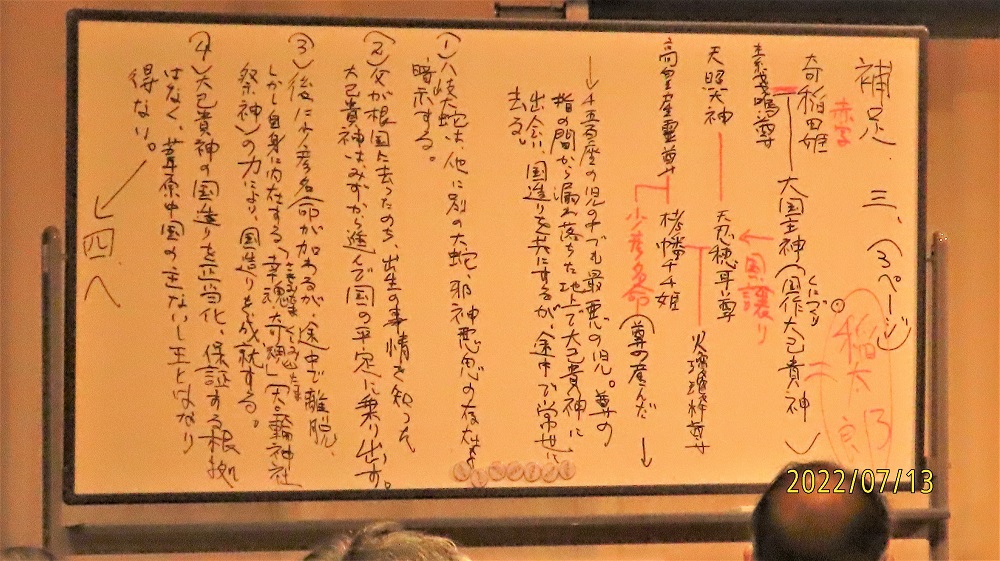 補足 三、(3ページ)
赤字
稲太郎
良
奇稲田姫
素戔嗚尊
大国主神(国作大己貴神)
くにつくり
天照大神
天忍穂耳尊
国譲り
高皇産霊尊
栲幡千千姫
火瓊瓊杵尊
少彦名命(尊の産んだ
千五百座の児の中でも最悪の児。尊の
指の間から漏れ落ちた地上で大己貴神に
出会い、国造りを共にするが、途中で常世に
去る。
(1)八岐大蛇は、他に別の大蛇、邪神悪鬼の存在を
暗示する。
(2)父が根国に去ったのち、出生の事情を知った
大己貴神はみずから進んで国の平定に乗り出す。
(3)後に少彦名命が加わるが、途中で離脱、
しかし自身に内在する「幸魂奇魂」(大三輪神社
祭神)の力により、国造りを成就する。
(4)大己貴神の国造りを正当化、保証する根拠
はなく、葦原中国の主ないし王となり
得ない。
四へ
2022/07/13